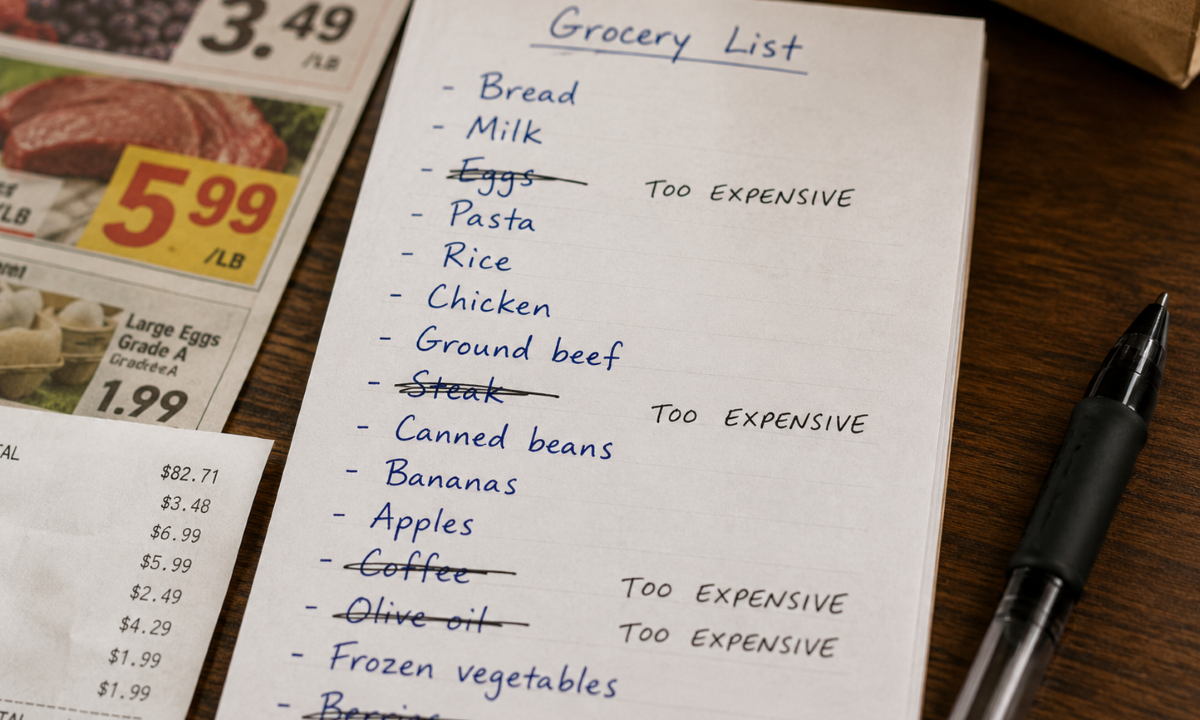 3.49
/LB
5 99
/LB
/LB
Large Eggs
Grade A
Grade A
1.99
$82.71
$3.48
$6.99
$5.99
$2.49
$4.29
$1.99
$1.99
Grocery List
- Bread
- Milk
- Eggs TOO EXPENSIVE
- Pasta
- Rice
- Chicken
- Ground beef
- Steak TOO EXPENSIVE
- Canned beans
- Bananas
- Apples
- Coffee TOO EXPENSIVE
- Olive oil TOO EXPENSIVE
- Frozen vegetables
- Berries